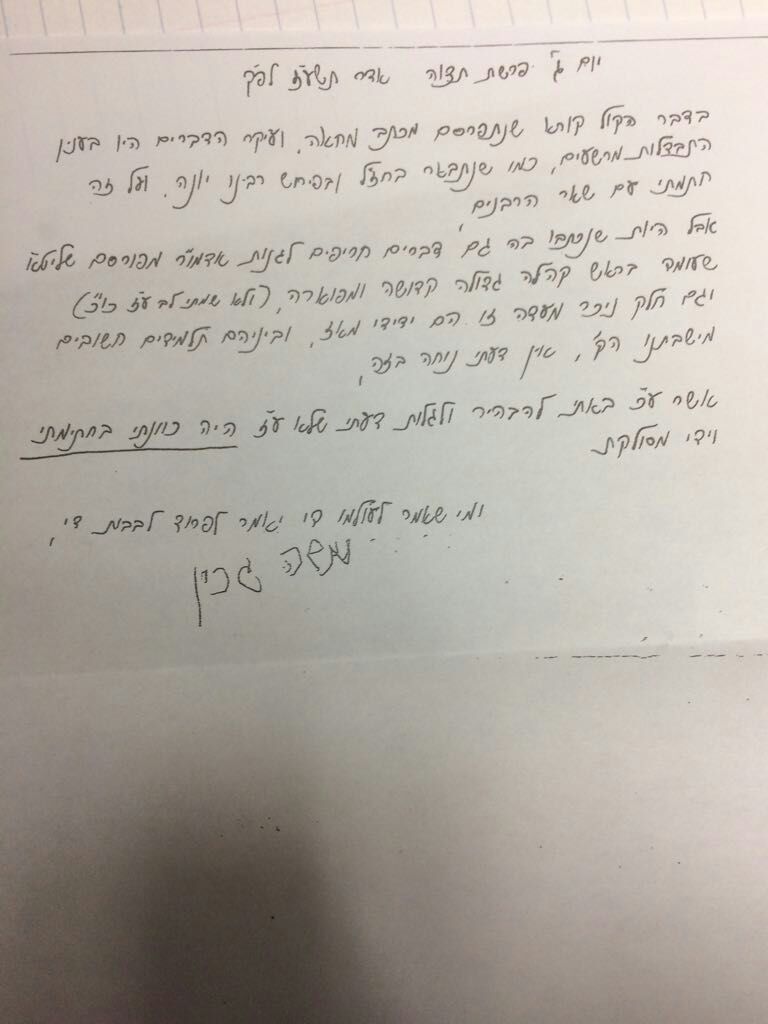 יום ג' פרשת תצוה אדר תשע"ז לפ"ק
בדבר הקול קורא שנתפרסם מכתב מחאה, ועיקר הדברים היו בענין
התבדלות מרשעים, כמו שנתבאר בחז"ל ובפירש רבינו יונה, ועל זה
חתמתי עם שאר הרבנים,
אבל היות שנכתבו בה גם דברים חריפים לגנות אדמו"ר מפורסם שליט"א
שעומד בראש קהלה גדולה קדושה ומפוארה, (ולא שמתי לב ע"ז כ"כ)
וגם חלק ניכר מעדה זו הם ידידי מאז, וביניהם תלמידים חשובים
מישבתנו הק', אין דעתי נוחה בזה,
אשר ע"כ באתי להבהיר ולגלות דעתי שלא ע"ז היה כוונתי בחתימתי
וידי מסולקת
ומי שאמר לעולמו די יאמר לפרוד לבבות די,
משה גרין